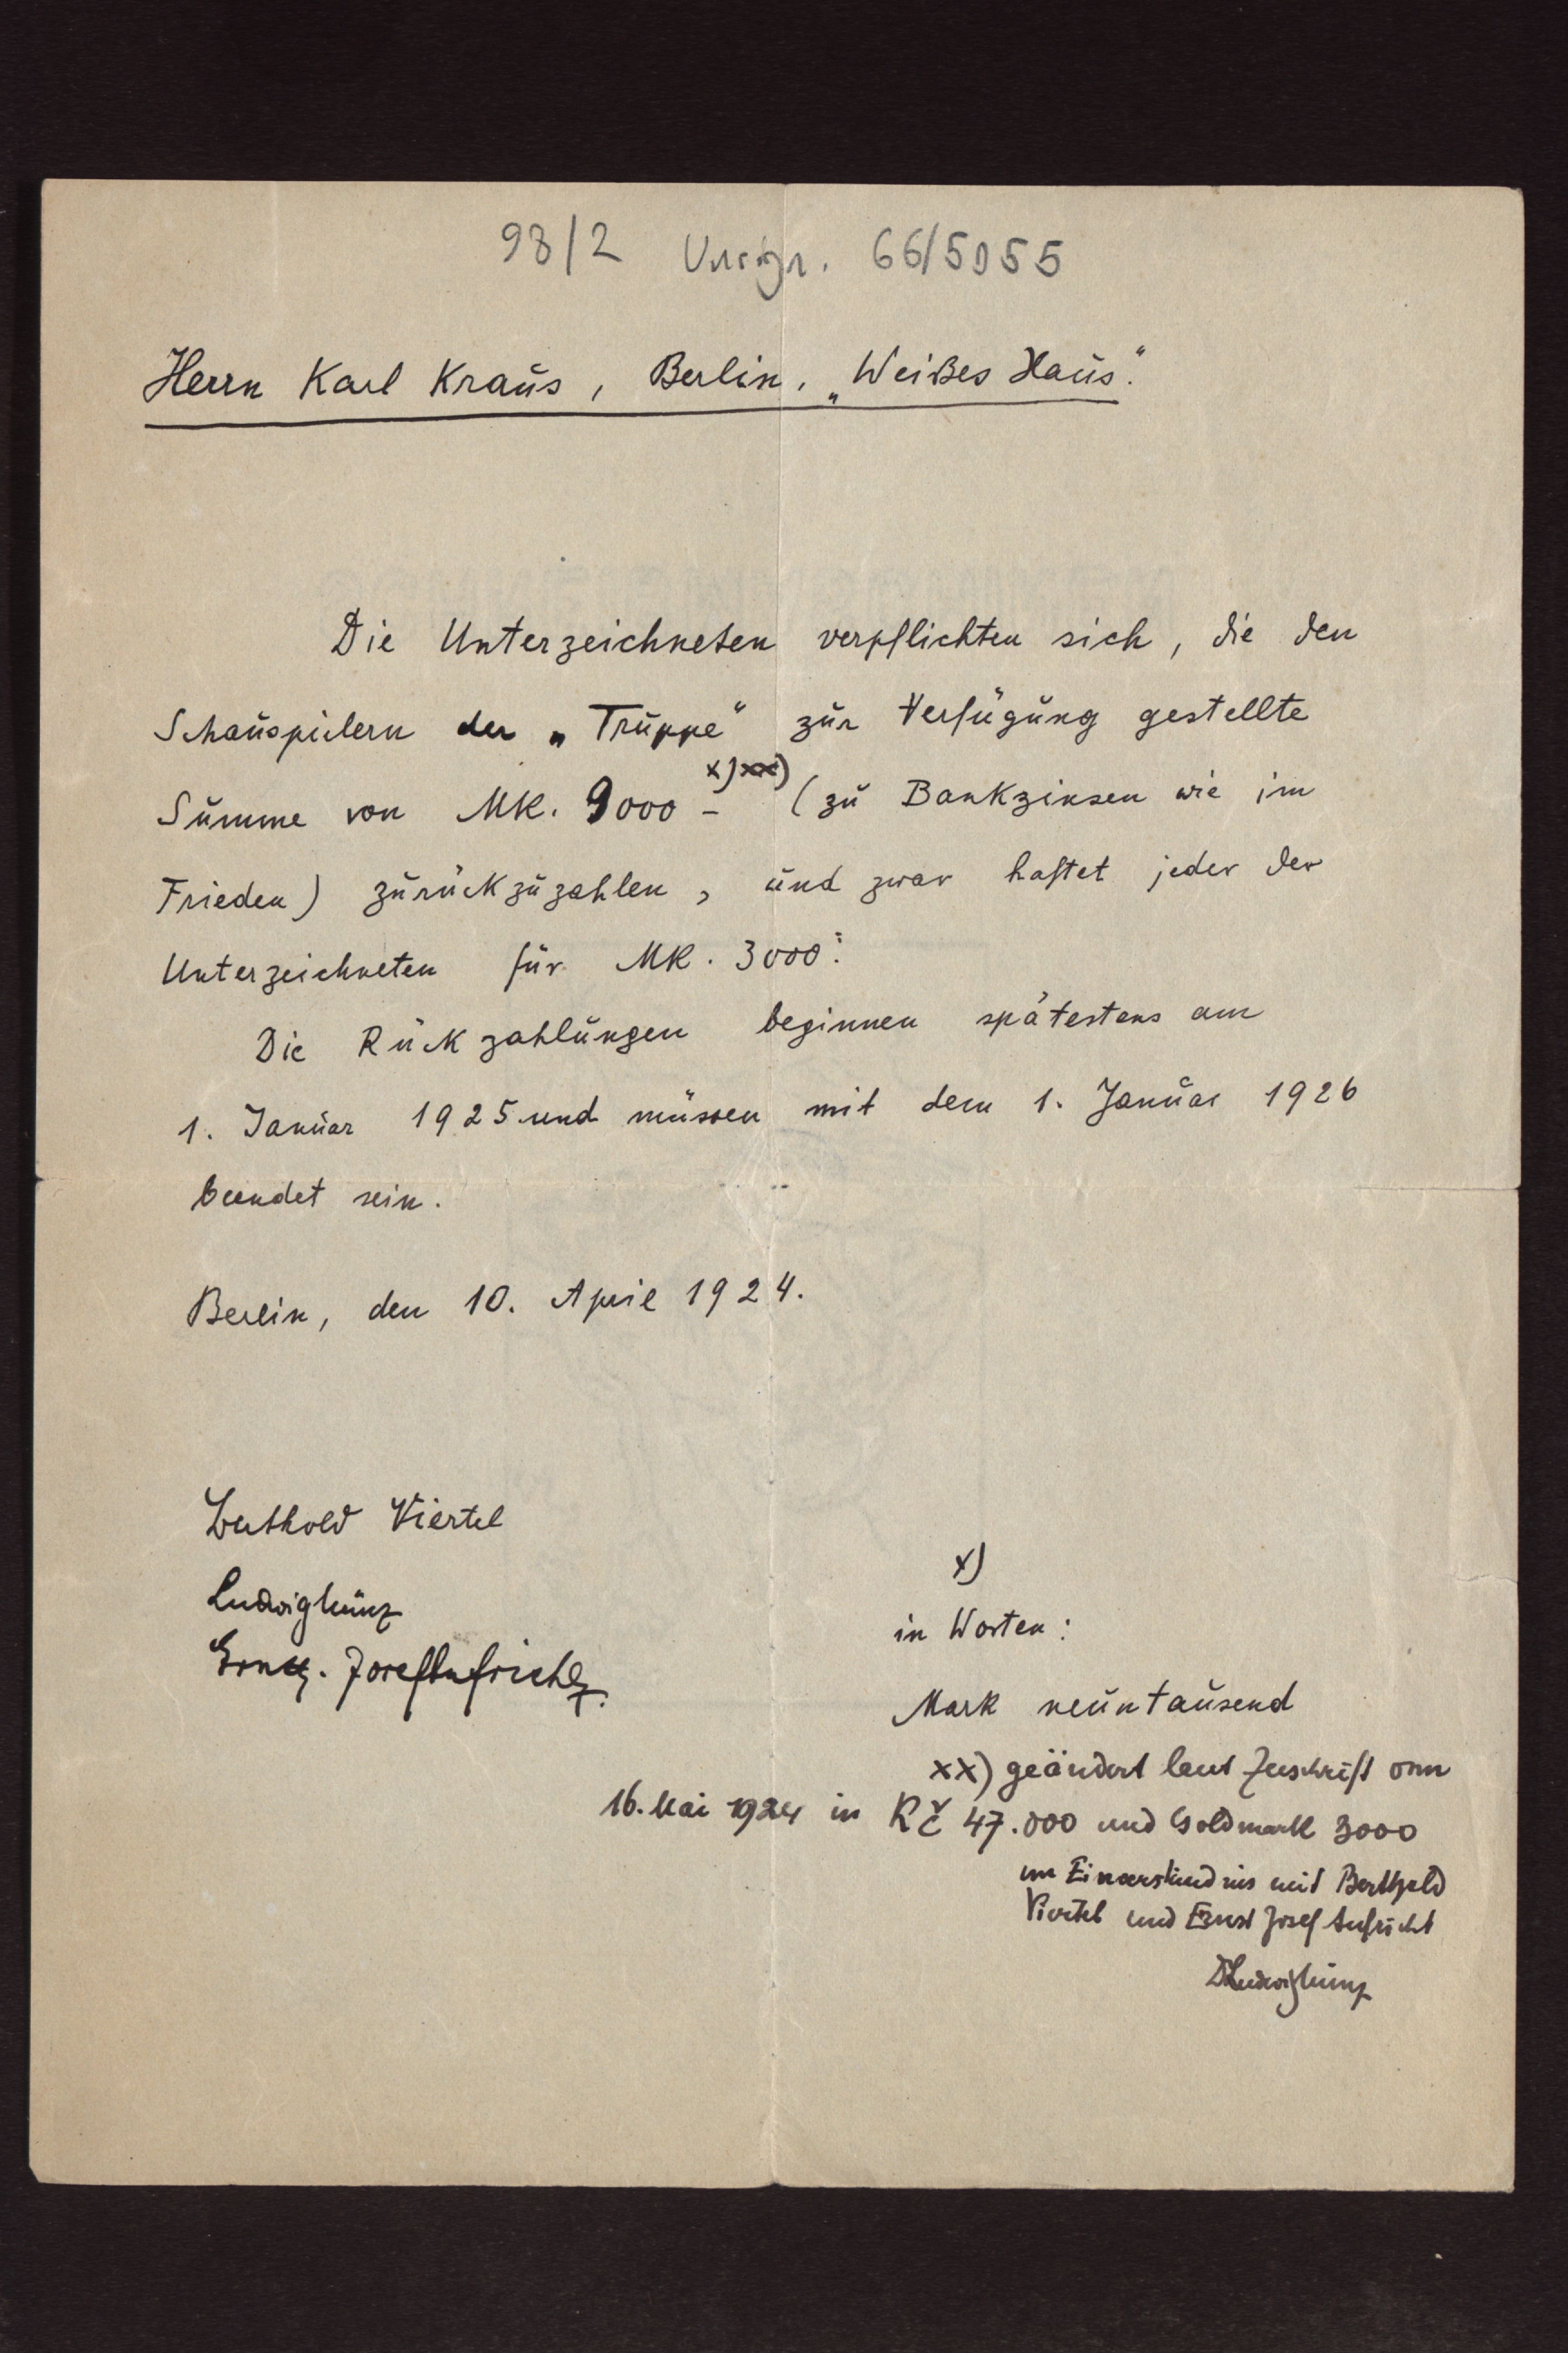 98/2 Ursigr. 66/5055
Herrn Karl Kraus, Berlin, „Weißes Haus“.
Die Unterzeichneten verpflichten sich, die den
Schauspielern der „Truppe“ zur Verfügung gestellte
Summe von MK. 9000 – x) xx) (zu Bankzinsen wie im
Frieden) zurückzuzahlen, und zwar haftet jeder der
Unterzeichneten für MK. 3000.–
Die Rückzahlungen beginnen spätestens am
1. Januar 1925 und müssen mit dem 1. Januar 1926
beendet sein.
Berlin, den 10. April 1924.
Berthold Viertel
Ludwig Münz
Ernst Josef Aufricht
x)
in Worten:
Mark neuntausend
xx) geändert laut Zuschrift vom
16. Mai 1924 in Kč 47.000 und Goldmark 3000
im Einverständnis mit Berthold
Viertel und Ernst Josef Aufricht
D Ludwig Münz